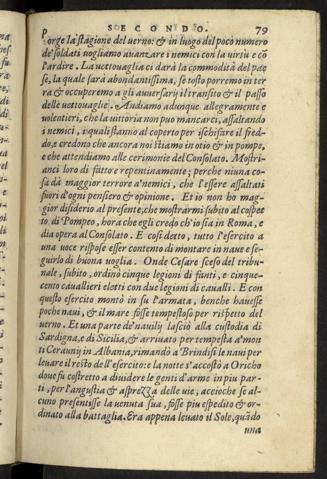 SECONDO. 79
porge la stagione del verno: & in luogo del poco numero
de' soldati vogliamo auanzare i nemici con la virtù e cō
l'ardire. La vettouaglia ci darà la commodità del pae
se, la quale sarà abondantissima, se tosto porremo in ter
ra & occuperemo a gli auuersary il transito & il passo
delle vettouaglie. Andiamo adunque allegramente e
volentieri, che la uittoria non puo mancarci, assaltando
i nemici, i quali stanno al coperto per ischifare il fred-
do, e credono che ancora noi stiamo in otio & in pompa,
e che attendiamo alle cerimonie del Consolato. Mostri-
anci loro di fatto e repentinamente; perche niuna co-
sa dà maggior terrore a' nemici, che l'essere assaltati
fuori d'ogni pensiero & opinione. Et io non ho mag-
gior disiderio al presente, che mostrarmi subito al cospet
to di Pompeo, hora che egli credo ch'io sia in Roma, e
dia opera al Consolato. E cosi detto, tutto l'esercito a
una voce rispose esser contento di montare in naue e se-
guirlo di buona voglia. Onde Cesare sceso del tribu-
nale, subito, ordinò cinque legioni di fanti, e cinque-
cento cauallieri eletti con due legioni di caualli. E con
questo esercito montò in su l'armata, benche hauesse
poche naui, & il mare fosse tempestoso per rispetto del
verno. Et una parte de' nauily lasciò alla custodia di
Sardigna, e di Sicilia, & arriuato per tempesta a' mon
ti Ceraunij in Albania, rimandò a' Brindisi le naui per
leuare il resto dell'esercito: e la notte s'accostò a Oricho
doue fu costretto a diuidere le genti d'arme in piu par-
ti, per l'angustia & asprezza delle vie, accioche se al-
cuno presentisse la uenuta sua, fosse piu espedito & or-
dinato alla battaglia. Era appena leuato il Sole, quādo
una